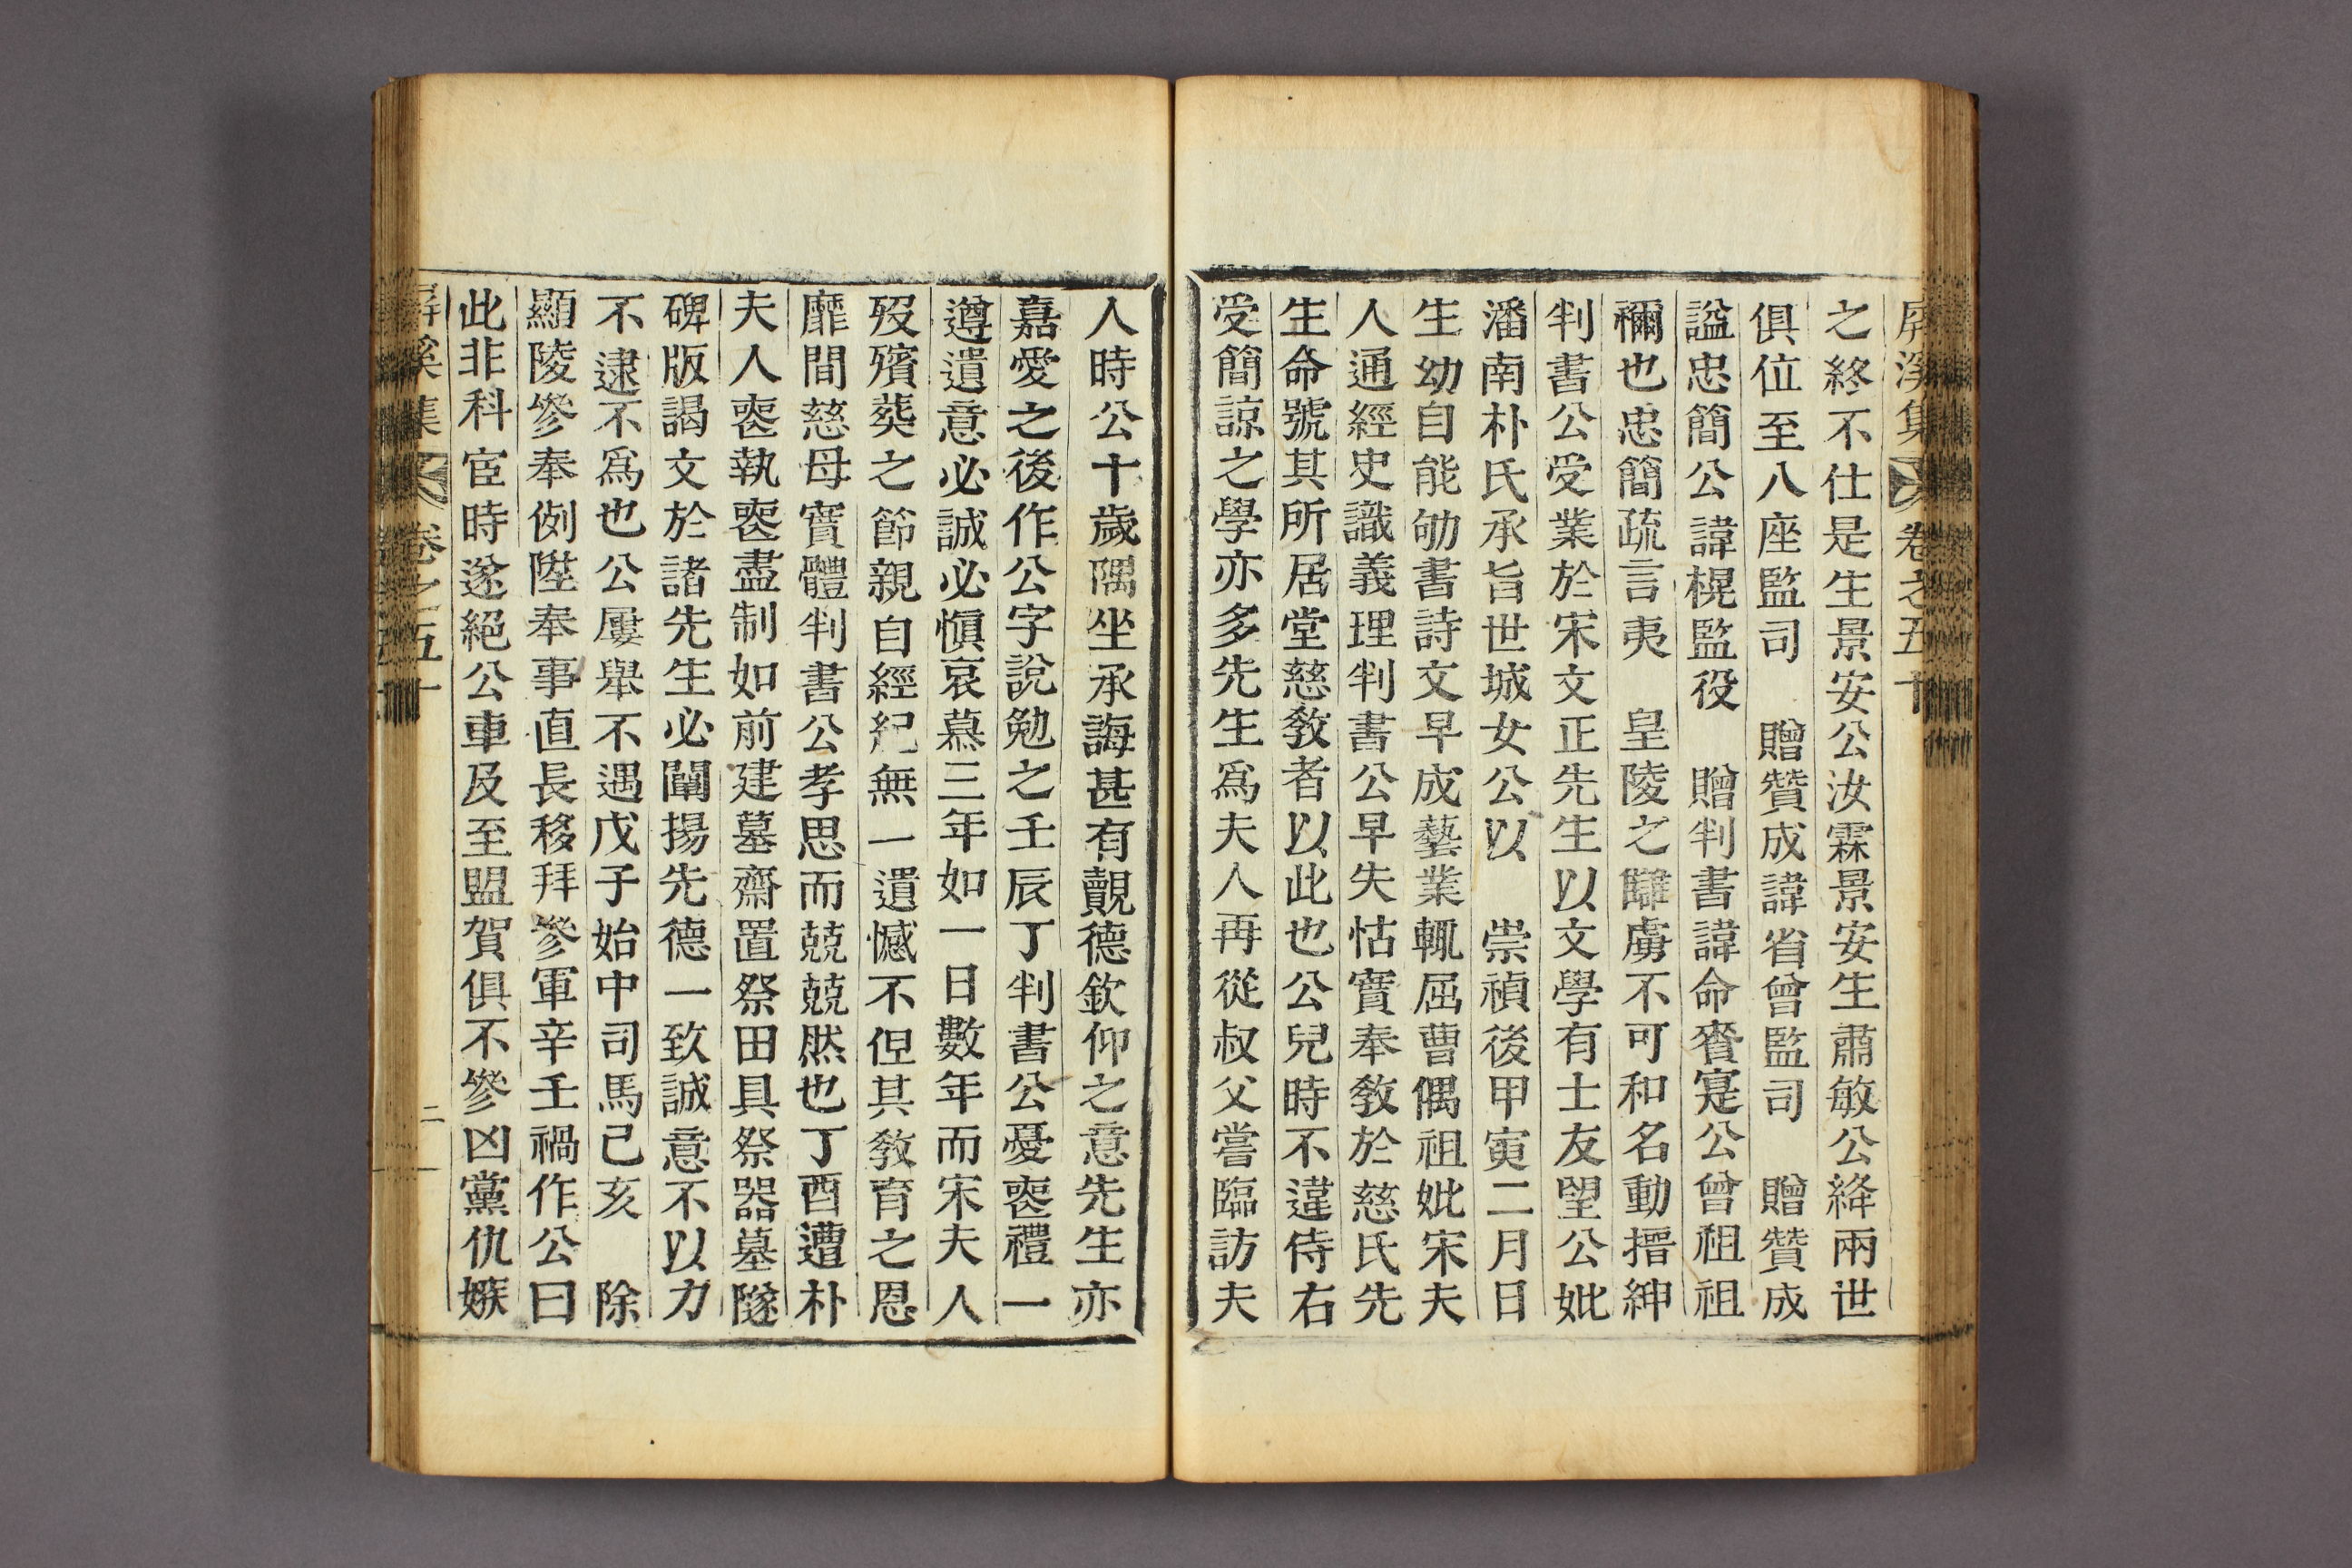 屛溪集 卷之五十
之終不仕是生景安公汝霖景安生肅敏公絳兩世
俱位至八座監司 贈贊成諱省曾監司 贈贊成
諡忠簡公諱榥監役 贈判書諱命賚寔公曾祖祖
禰也忠簡疏言夷 皇陵之讎虜不可和名動搢紳
判書公受業於宋文正先生以文學有士友望公妣
潘南朴氏承旨世城女公以 崇禎後甲寅二月日
生幼自能劬書詩文早成藝業輒屈曹偶祖妣宋夫
人通經史識義理判書公早失怙實奉敎於慈氏先
生命號其所居堂慈敎者以此也公兒時不違侍右
受簡諒之學亦多先生爲夫人再從叔父嘗臨訪夫
人時公十歲隅坐承誨甚有覿德欽仰之意先生亦
嘉愛之後作公字說勉之壬辰丁判書公憂喪禮一
遵遺意必誠必愼哀慕三年如一日數年而宋夫人
歿殯葬之節親自經紀無一遺憾不但其敎育之恩
靡間慈母實體判書公孝思而兢兢然也丁酉遭朴
夫人喪執喪盡制如前建墓齋置祭田具祭器墓隧
碑版謁文於諸先生必闡揚先德一致誠意不以力
不逮不爲也公屢舉不遇戊子始中司馬己亥 除
顯陵參奉例陞奉事直長移拜參軍辛壬禍作公曰
此非科宦時遂絕公車及至盟賀俱不參凶黨仇嫉
屛溪集 卷之五十 二